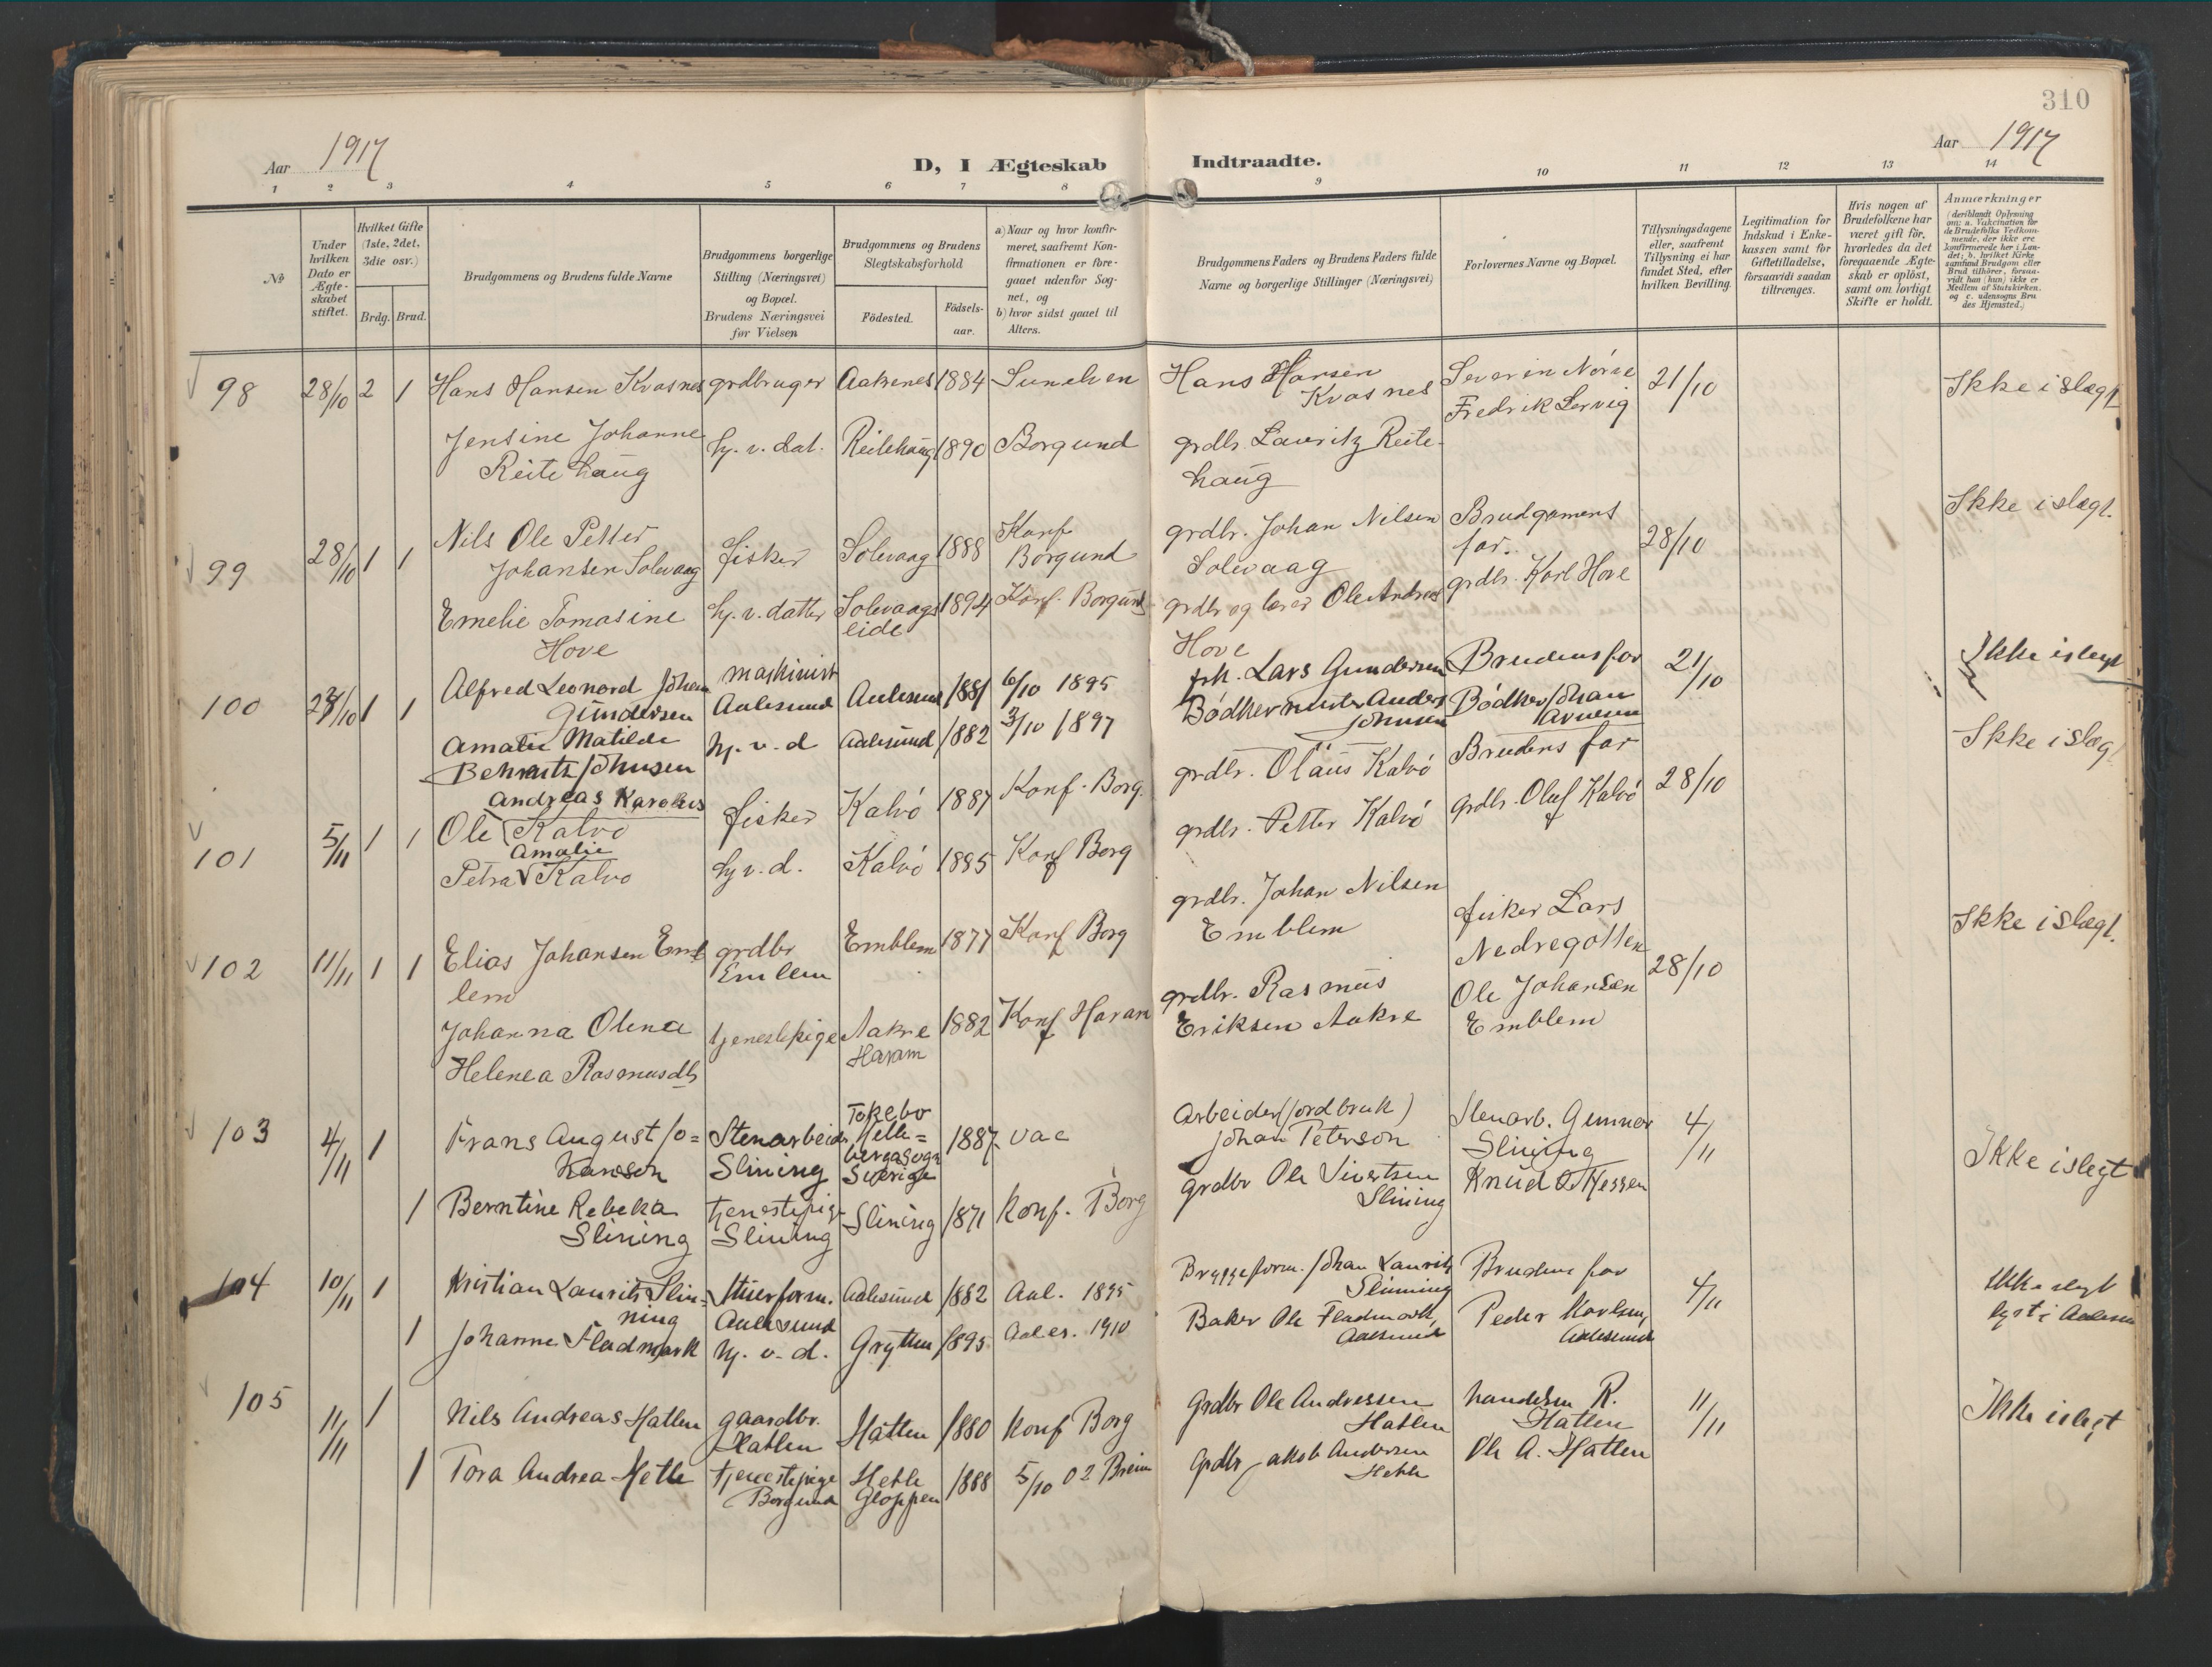 310
Aar 1917
D, I Ægteskab Indtraadte.
Aar 1917
1 2 3 4 5 6 7 8 9 10 11 12 13 14
№
Under
hvilken
Dato er
Ægte-
skabet
stiftet.
Hvilket Gifte
(1ste, 2det,
3die osv.)
Brdg. Brud.
Brudgommens og Brudens fulde Navne
Brudgommens borgerlige
Stilling (Næringsvei)
og Bopæl.
Brudens Næringsvei
før Vielsen
Brudgommens og Brudens
Slegtskabsforhold
Födested.
Födsels-
aar.
a) Naar og hvor konfir-
meret, saafremt Kon-
firmationen er fore-
gaaet udenfor Sog-
net, og
b) hvor sidst gaaet til
Alters.
Brudgommens Faders og Brudens Faders fulde
Navne og borgerlige Stillinger (Næringsvei)
Forlovernes Navne og Bopæl.
Tillysningsdagene
eller, saafremt
Tillysning ei har
fundet Sted, efter
hvilken Bevilling.
Legitimation for
Indskud i Enke-
kassen samt for
Giftetilladelse,
forsaavidt saadan
tiltrænges.
Hvis nogen af
Brudefolkene har
været gift för,
hvorledes da det
foregaaende Ægte-
skab er oplöst,
samt om lovligt
Skifte er holdt.
Anmærkninger
(deriblandt Oplysning
om: a. Vakcination for
de Brudefolks Vedkom-
mende, der ikke ere
konfirmerede her i Lan-
det; b. hvilket Kirke
samfund Brudgom eller
Brud tilhörer, forsaa-
vidt han (hun) ikke er
Medlem af Statskirken.
og c. udensogns Bru
des Hjemsted.)
98 28/10 2 1 Hans Hansen Kvasnes grdbruger Aaknes 1884 Sunelven Hans Hansen
Kvasnes
Severin Nörve
Fredrik Lervig
21/10 Ikke i slægt
Jensine Johanne
Reitehaug
hj. v. dat. Reitehaug 1890 Borgund grdbr. Lauritz Reite-
haug
99 28/10 1 1 Nils Ole Petter
Johansen Solevaag
fisker Solevaag 1888 Konf
Borgund
grdbr. Johan Nilsen
Solevaag
Brudgomens
far.
28/10 Ikke i slægt.
Emelie Tomasine
Hove
hj. v. datter Solevaags
eide
1894 Konf. Borgund grdbr og lærer Ole Andreas
Hove
grdbr. Karl Hove
100 1 1 Alfred Leonard Johan
Gundersen
maskinist
Aalesund
Aalesund 1881 6/10 1895 Lars Gundersen Brudens far 21/10 Ikke i slegt
Amalie Matilde
Johnsen
hj. v. d Aalesund 1882 3/10 1897 Bødkermester Anders
Johnsen
Bødker Johan
Arnesen
101 5/11 1 1 Andreas Karolius
Ole Kalvö
fisker Kalvö 1887 Konf. Borg. grdbr. Olaus Kalvö Brudens far 28/10 Ikke i slægt
Amalie
Petra Kalvö
hj v. d. Kalvö 1885 Konf Borg grdbr. Petter Kalvö grdbr. Oluf Kalvö
102 11/11 1 1 Elias Johansen Emb
lem
grdbr
Emlem
Emblem 1877 Konf Borg grdbr. Johan Nilsen
Emblem
fisker Lars
Nedregotten
28/10 Ikke i slægt.
Johanna Olena
Helenea Rasmusdtr
tjenestepige Aakre
Haram
1882 Konf Haram grdbr. Rasmus
Eriksen Aakre
Ole Johansen
Emblem
103 4/11 1 Frans August Jo=
hanson
Stenarbeider
Slining
Tokebo
Melle=
bergasogn
Sverige
1887 vac Arbeider (jordbruk)
Johan Peterson
Stenarb. Gunnar
Slining
4/11 Ikke i slegt
1 Berntine Rebeka
Slining
tjenestepige
Slining
Slining 1871 Konf. Borg grdbr Ole Sivertsen
Slining
Knud
104 10/11 1 Kristian Laurits Slin=
ning
Aalesund
Aalesund 1882 Aal. 1895 Bryggeform. Johan Laurits
Slinning
Brudens far 4/11 Ikke slegt
lyst i Aalesund
1 Johanne Fladmark hj. v. d. Grytten 1895 Aales. 1910 Baker Ole Fladmark,
Aalesund
Peder Karlsen,
Aalesund
105 11/11 1 Nils Andreas Hatlen gaardbr.
Hatlen
Hatlen 1880 Konf Borg Grdbr Ole Andreassen
Hatlen
handelsm R.
Hatlen
11/11 Ikke i slegt
1 Tora Andrea Hetle tjenestepige
Borgund
Hetle
Gloppen
1888 5/10 02 Breim Grdbr Jakob Andersen
Hetle
Ole A. Hatlen